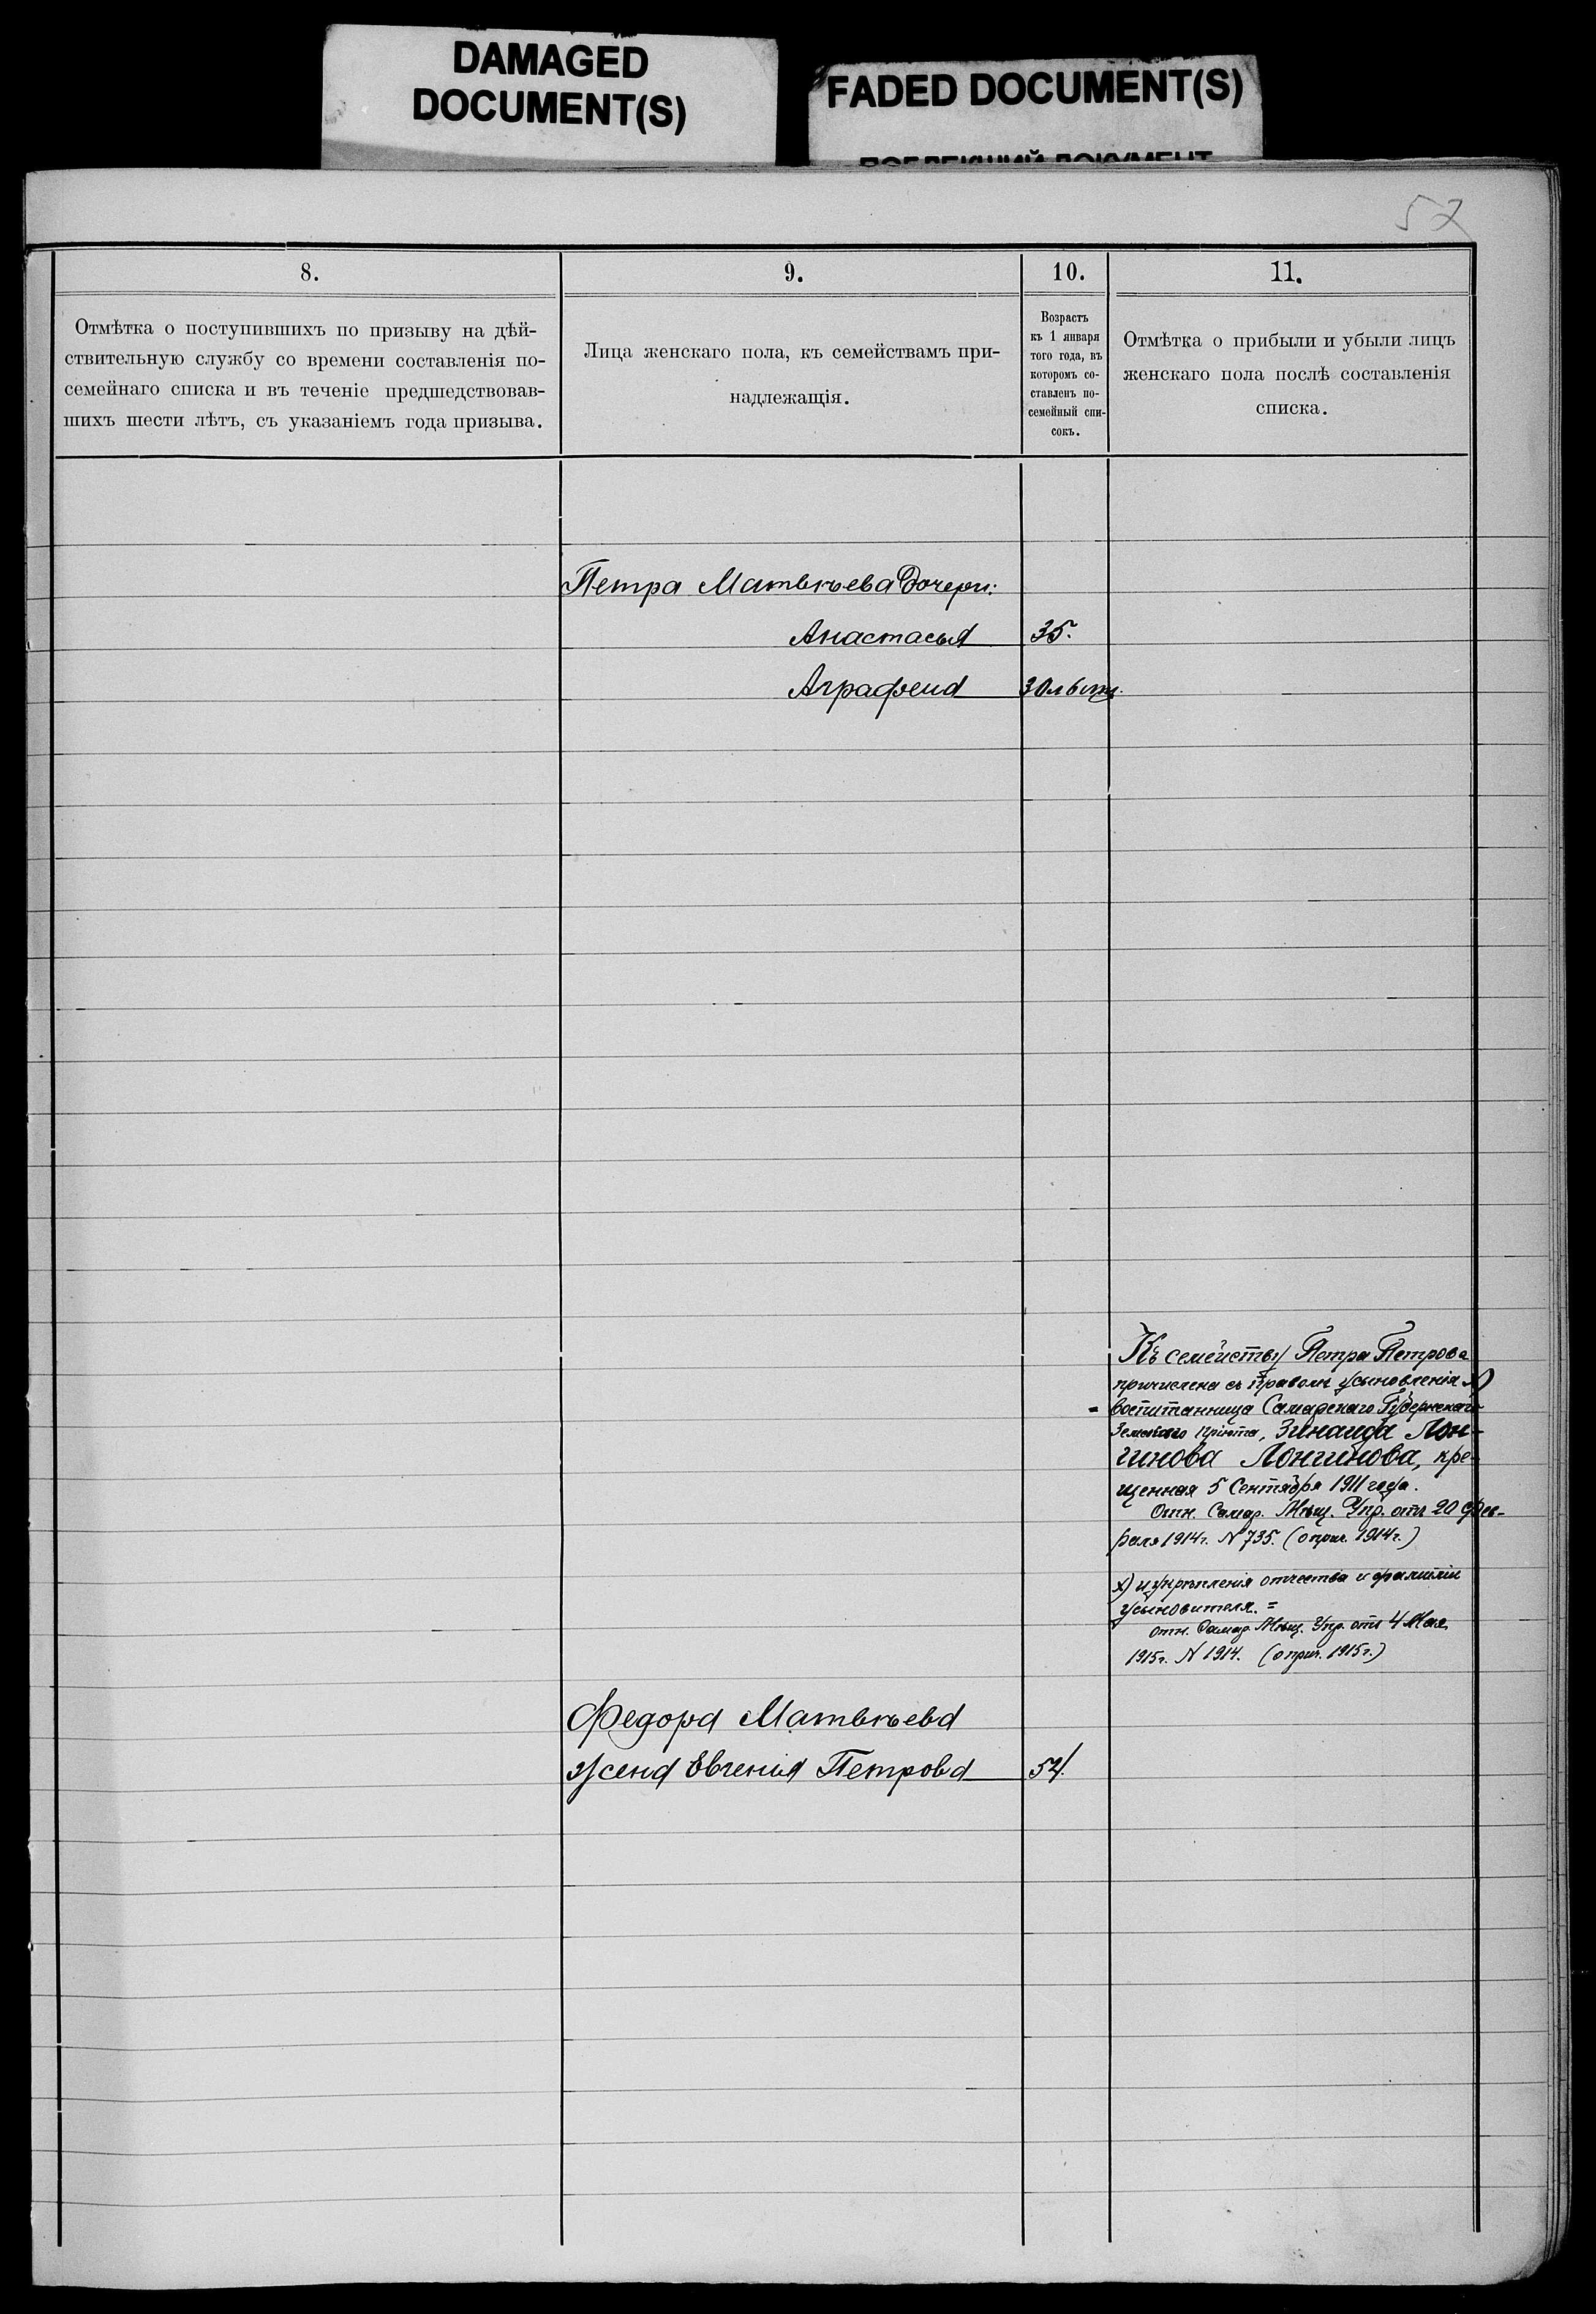 DAMAGED
DOCUMENT(S)
FADED DOCUMENT(S)
57
8.
9.
10.
11.
Отмѣтка о поступившихъ по призыву на дѣй-
ствительную службу со времени составленія по-
семейнаго списка и въ теченіе предшедствовав-
шихъ шести лѣтъ, съ указаніемъ года призыва.
Лица женскаго пола, къ семействамъ при-
надлежащія.
Возрастъ
къ 1 января
того года, въ
которомъ со-
ставленъ по-
семейный спи-
сокъ.
Отмѣтка о прибыли и убыли лицъ
женскаго пола послѣ составленія
списка.
Петра Матвѣева дочери:
Анастасья 35.
Аграфена 30 лѣтъ
Къ семейству Петра Петрова
причислена съ правомъ усыновленія х)
воспитанница Самарскаго Губернскаго
Земскаго пріюта, Зинаида Лон-
гинова Лонгинова, кре-
щенная 5 Сентября 1911 года.
Отн. Самар. Мѣщ. Упр. отъ 20 Фев-
раля 1914 г. № 735. (о прич. 1914 г.)
х) и укрѣпленія отчества и фамиліи
усыновителя. =
отн. Самар. Мѣщ. Упр. отъ 4 Мая
1915 г. № 1914. (о прич. 1915 г.)
Федора Матвѣева
жена Евгенія Петрова 54.